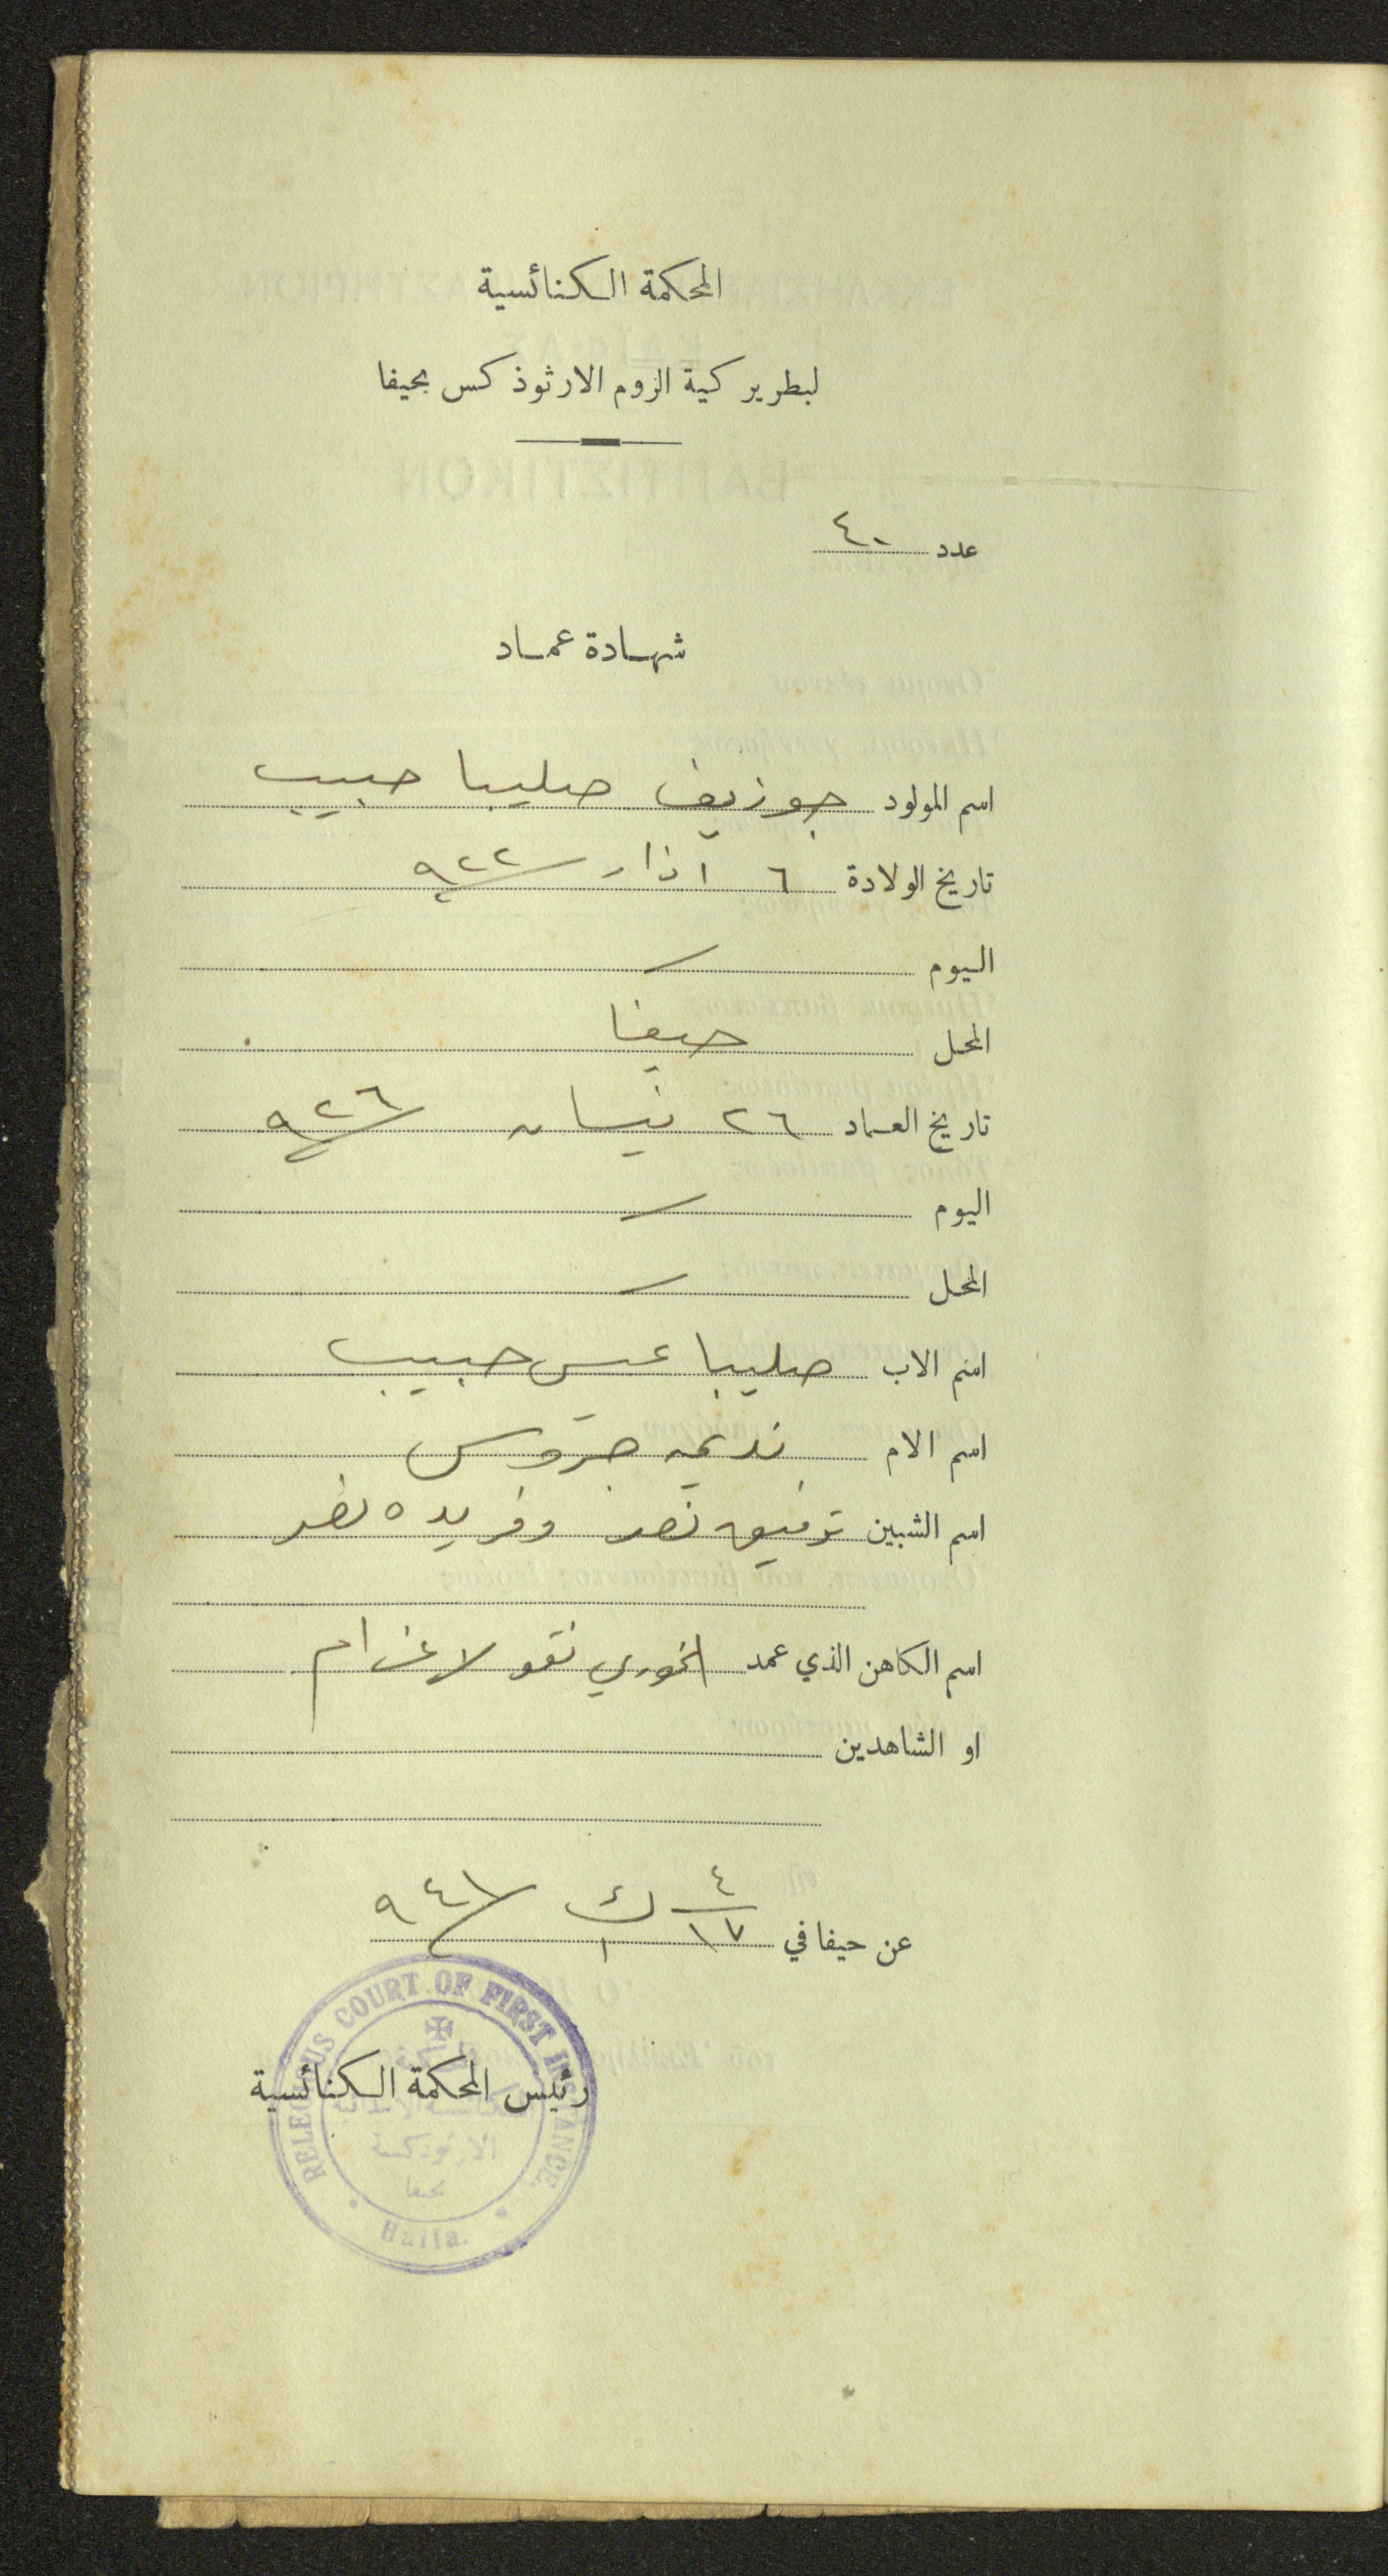 المحكمة الكنائسية
لبطريركية الروم الارثوذكس بحيفا
عدد ٤٠
شهادة عماد
اسم المولود جوزيف صليبا حبيب
تاريخ الولادة ٦ اذار ٩٢٢
اليوم
المحل حيفا
تاريخ العماد ٢٦ نيسان ٩٢٦
اليوم
المحل
اسم الاب صليبا عيسى حبيب
اسم الام نديمه
اسم الشبين توفيق نصر وفريده نصر
اسم الكاهن الذي عمد الخوري نقولا
او الشاهدين
عن حيفا في ٤/١٧ ك١ ٩٤١
RELEGIOUS COURT OF FIRST INSTANCE.
رئيس المحكمة الكنائسية
الارثوذكسية
بحيفا
Haifa.